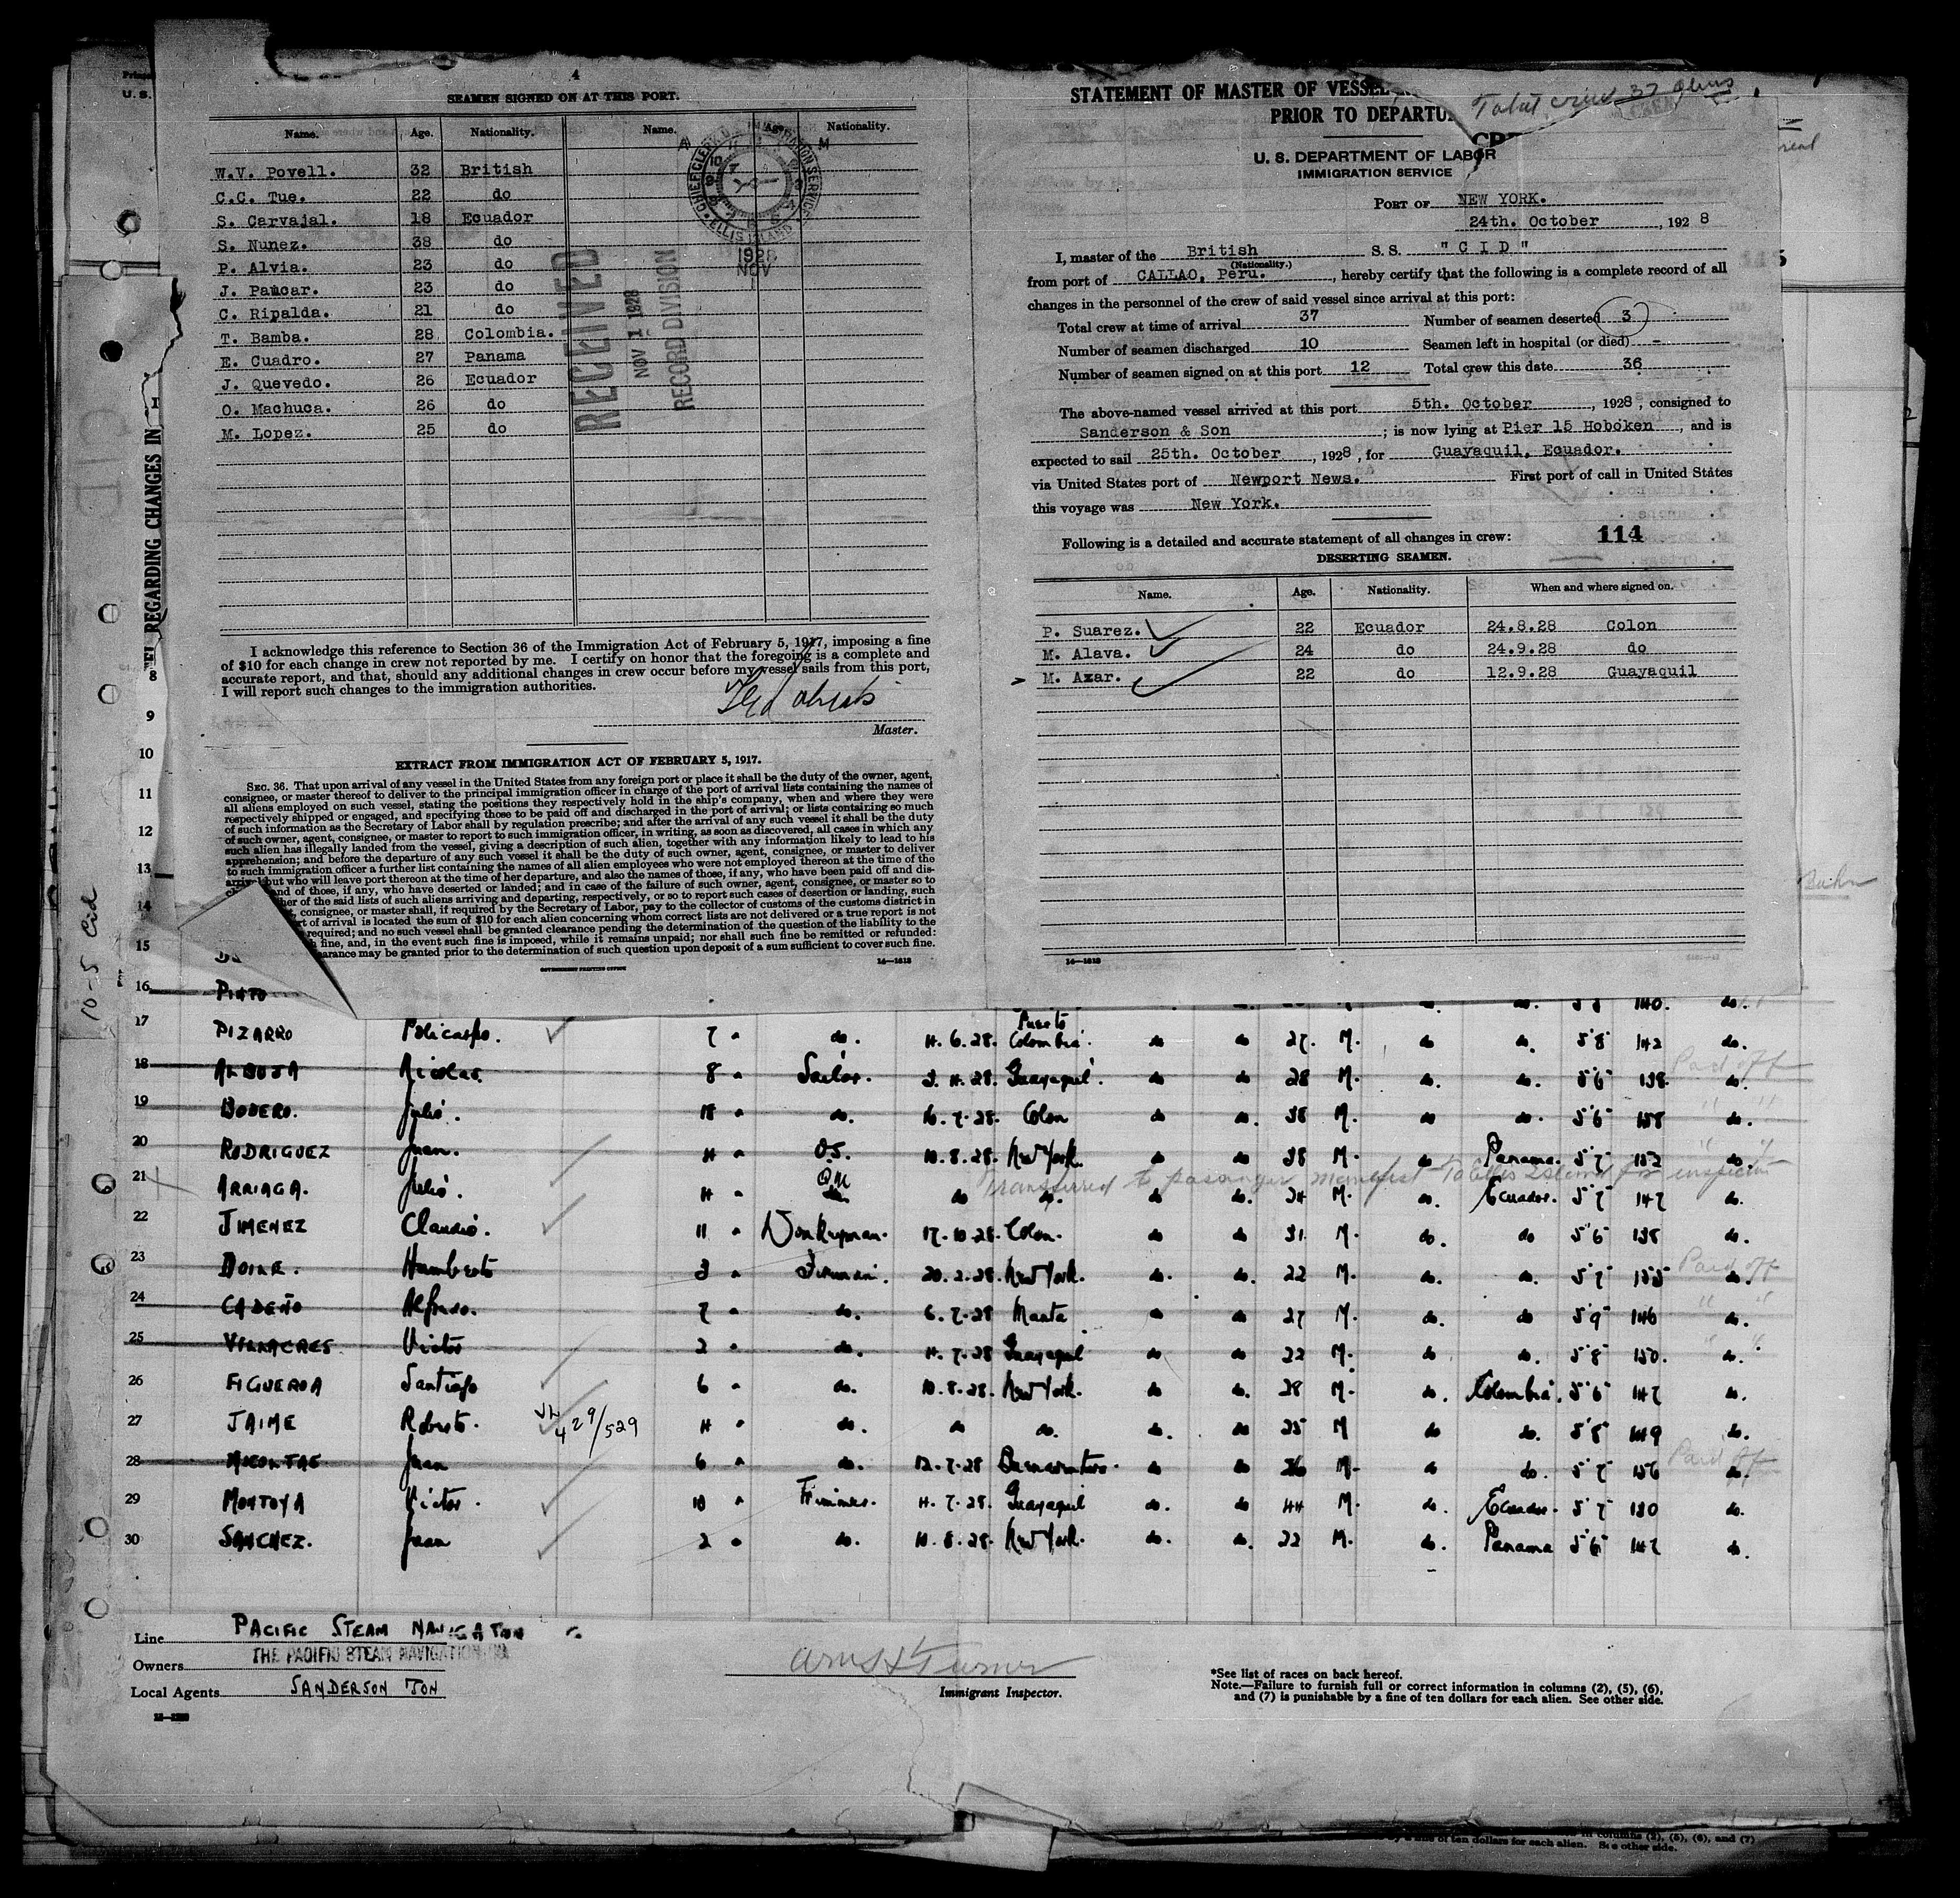 4
SEAMEN SIGNED ON AT THIS PORT.
Name. Age. Nationality. Name. Age. Nationality.
W.V. Povell. 32 British
C.C. Tue. 22 do
S. Carvajal. 18 Ecuador
S. Nunez. 38 do
P. Alvia. 23 do
J. Paucar. 23 do
C. Ripalda. 21 do
T. Bamba. 28 Colombia.
E. Cuadro. 27 Panama
J. Quevedo. 26 Ecuador
O. Machuca. 26 do
M. Lopez. 25 do
ELLIS ISLAND
1928
NOV
RECEIVED
NOV 1 1928
RECORD DIVISION
I acknowledge this reference to Section 36 of the Immigration Act of February 5, 1917, imposing a fine
of $10 for each change in crew not reported by me. I certify on honor that the foregoing is a complete and
accurate report, and that, should any additional changes in crew occur before my vessel sails from this port,
I will report such changes to the immigration authorities.
Master.
EXTRACT FROM IMMIGRATION ACT OF FEBRUARY 5, 1917.
SEC. 36. That upon arrival of any vessel in the United States from any foreign port or place it shall be the duty of the owner, agent,
consignee, or master thereof to deliver to the principal immigration officer in charge of the port of arrival lists containing the names of
all aliens employed on such vessel, stating the positions they respectively hold in the ship's company, when and where they were
respectively shipped or engaged, and specifying those to be paid off and discharged in the port of arrival; or lists containing so much
of such information as the Secretary of Labor shall by regulation prescribe; and after the arrival of any such vessel it shall be the duty
of such owner, agent, consignee, or master to report to such immigration officer, in writing, as soon as discovered, all cases in which any
such alien has illegally landed from the vessel, giving a description of such alien, together with any information likely to lead to his
apprehension; and before the departure of any such vessel it shall be the duty of such owner, agent, consignee, or master to deliver
to such immigration officer a further list containing the names of all alien employees who were not employed thereon at the time of the
arrival but who will leave port thereon at the time of her departure, and also the names of those, if any, who have been paid off and dis-
and of those, if any, who have deserted or landed; and in case of the failure of such owner, agent, consignee, or master so to
her of the said lists of such aliens arriving and departing, respectively, or so to report such cases of desertion or landing, such
consignee, or master shall, if required by the Secretary of Labor, pay to the collector of customs of the customs district in
rt of arrival is located the sum of $10 for each alien concerning whom correct lists are not delivered or a true report is not
required; and no such vessel shall be granted clearance pending the determination of the question of the liability to the
fine, and, in the event such fine is imposed, while it remains unpaid; nor shall such fine be remitted or refunded:
earance may be granted prior to the determination of such question upon deposit of a sum sufficient to cover such fine.
GOVERNMENT PRINTING OFFICE 14—1818
STATEMENT OF MASTER OF VESSEL
PRIOR TO DEPARTU
Total crew 37 aliens
U. S. DEPARTMENT OF LABOR
IMMIGRATION SERVICE
PORT OF NEW YORK.
24th. October, 1928
I, master of the British S.S. "CID"
(Nationality.)
from port of CALLAO, Peru., hereby certify that the following is a complete record of all
changes in the personnel of the crew of said vessel since arrival at this port:
Total crew at time of arrival 37 Number of seamen deserted 3
Number of seamen discharged 10 Seamen left in hospital (or died) -
Number of seamen signed on at this port 12 Total crew this date 36
The above-named vessel arrived at this port 5th. October, 1928, consigned to
Sanderson & Son; is now lying at Pier 15 Hoboken, and is
expected to sail 25th. October, 1928, for Guayaquil, Ecuador.
via United States port of Newport News. First port of call in United States
this voyage was New York.
Following is a detailed and accurate statement of all changes in crew: 114
DESERTING SEAMEN.
Name. Age. Nationality. When and where signed on.
P. Suarez. 22 Ecuador 24.8.28 Colon
M. Alava. 24 do 24.9.28 do
M. Azar. 22 do 12.9.28 Guayaquil
14—1818
REGARDING CHANGES IN
10-5 Cid
8
9
10
11
12
13
14
15
16 PINTO 140. do.
17 PIZARRO Policarpo. 7 " do. 4.6.28. Puerto Colombia. do do 27. M. do do. 5'8 142 do.
18 ALBUJA Nicolas. 8 " Sailor. 3.4.28. Guayaquil. do do 28 M. do. do. 5'6 138. do. Paid off
19 BODERO. Julio. 18 " do. 16.7.28. Colon do do. 38 M. do do. 5'6 158 do. " "
20 RODRIGUEZ Juan. 4 " O.S. 10.8.28. New York. do do. 38 M. do Panama. 5'7 152 do. " "
Transferred to passenger manifest To Ellis Island for inspection
21 ARRIAGA. Julio. 4 " QM do do. do do. 24 M. do. Ecuador. 5'7 147 do.
22 JIMENEZ Claudio. 11 " Donkeyman. 17.10.28. Colon. do do. 31. M. do. do 5'6 138 do.
23 Humberto 3 " Fireman. 20.2.28. New York. do. do. 22 M. do. do. 5'7 155 do. Paid off
24 CADEÑO Alfredo. 7 " do. 6.7.28 Manta do do 27 M. do. do 5'9 146 do. " "
25 VILLACRES Victor 2 " do. 4.7.28 Guayaquil do do 22 M. do do. 5'8 150. do. " "
26 FIGUEROA Santiago 6 " do. 10.8.28. New York. do do. 28 M. do. Colombia. 5'6 147 do.
27 JAIME Roberto. 429/529 4 " do. do do. do. do. 25 M do do. 5'8 149 do.
28 Juan 6 " do. 12.7.28 Buenaventura. do do 26 M. do do. 5'7 156 do. Paid off
29 MONTOYA Victor. 10 " Trimmer. 4.7.28. Guayaquil do. do 44 M. do. Ecuador. 5'7 130 do.
30 SANCHEZ. Juan 2 " do. 10.8.28. New York. do. do. 22 M. do. Panama 5'6 147 do.
Line PACIFIC STEAM NAVIGATION
Owners THE PACIFIC STEAM NAVIGATION CO.
Local Agents SANDERSON & SON
Turner
Immigrant Inspector.
*See list of races on back hereof.
Note.—Failure to furnish full or correct information in columns (2), (5), (6),
and (7) is punishable by a fine of ten dollars for each alien. See other side.
in columns (2), (5), (6), and (7)
by a fine of ten dollars for each alien. See other side.